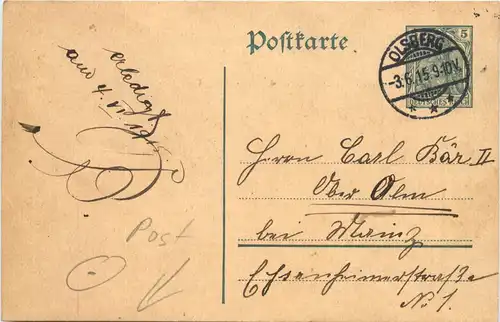 Postkarte
5
OLSBERG
-3.6.15.9-10V.
DEUTSCHES REICH
erledigt
am 4. VI. 1915.
Herrn Carl Bär II
Ober Olm
bei Mainz
Essenheimerstraße
No 1.
Post